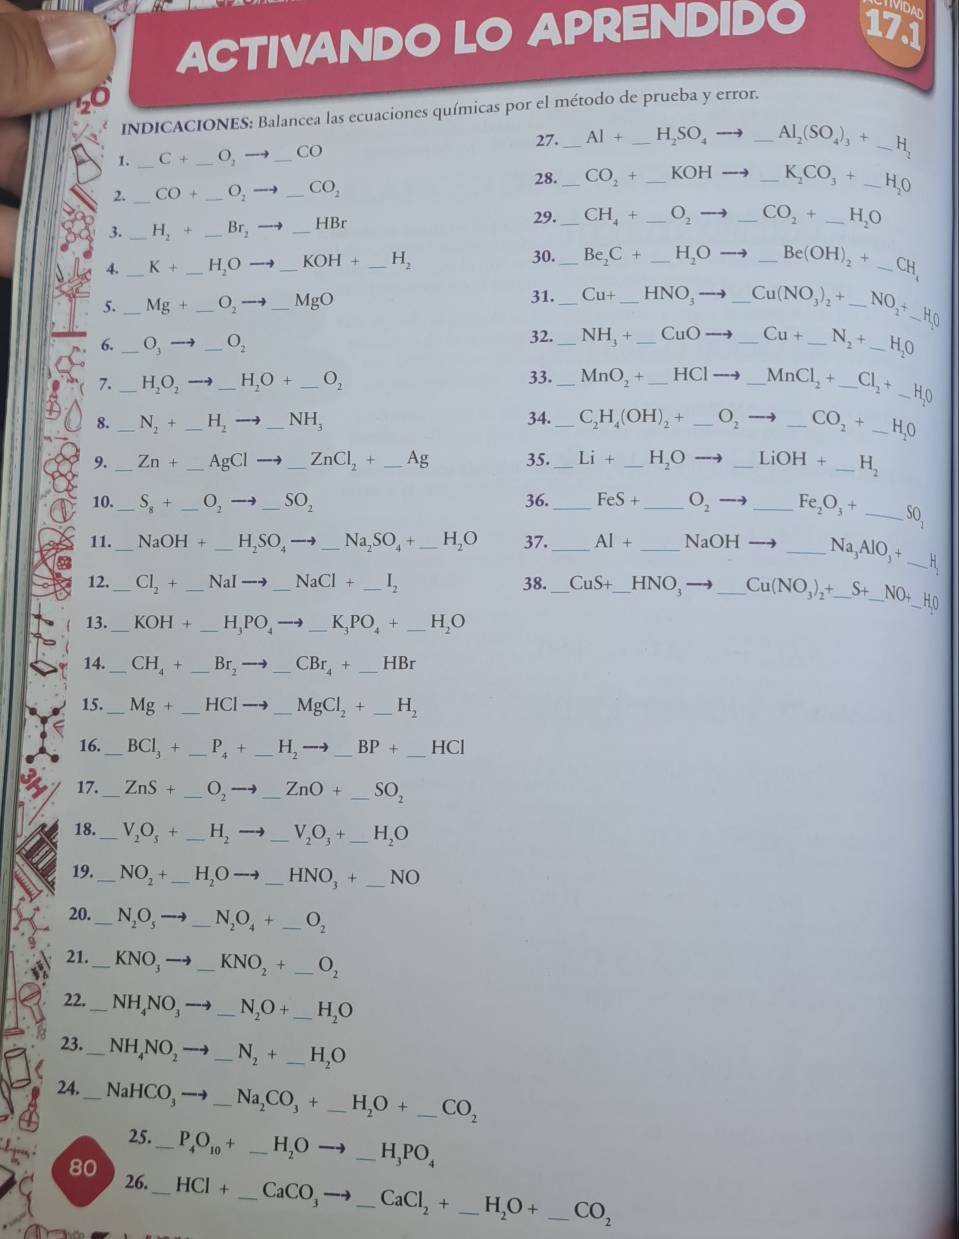 ACTIVIDAD
17.1
ACTIVANDO LO APRENDIDO
INDICACIONES: Balancea las ecuaciones químicas por el método de prueba y error.
1. __ C + __ O₂ → __ CO
2. __ CO + __ O₂ → __ CO₂
3. __ H₂ + __ Br₂ → __ HBr
4. __ K + __ H₂O → __ KOH + __ H₂
5. __ Mg + __ O₂ → __ MgO
6. __ O₃ → __ O₂
7. __ H₂O₂ → __ H₂O + __ O₂
8. __ N₂ + __ H₂ → __ NH₃
9. __ Zn + __ AgCl → __ ZnCl₂ + __ Ag
10. __ S₈ + __ O₂ → __ SO₂
11. __ NaOH + __ H₂SO₄ → __ Na₂SO₄ + __ H₂O
12. __ Cl₂ + __ NaI → __ NaCl + __ I₂
13. __ KOH + __ H₃PO₄ → __ K₃PO₄ + __ H₂O
14. __ CH₄ + __ Br₂ → __ CBr₄ + __ HBr
15. __ Mg + __ HCl → __ MgCl₂ + __ H₂
16. __ BCl₃ + __ P₄ + __ H₂ → __ BP + __ HCl
17. __ ZnS + __ O₂ → __ ZnO + __ SO₂
18. __ V₂O₅ + __ H₂ → __ V₂O₃ + __ H₂O
19. __ NO₂ + __ H₂O → __ HNO₃ + __ NO
20. __ N₂O₅ → __ N₂O₄ + __ O₂
21. __ KNO₃ → __ KNO₂ + __ O₂
22. __ NH₄NO₃ → __ N₂O + __ H₂O
23. __ NH₄NO₂ → __ N₂ + __ H₂O
24. __ NaHCO₃ → __ Na₂CO₃ + __ H₂O + __ CO₂
25. __ P₄O₁₀ + __ H₂O → __ H₃PO₄
26. __ HCl + __ CaCO₃ → __ CaCl₂ + __ H₂O + __ CO₂
27. __ Al + __ H₂SO₄ → __ Al₂(SO₄)₃ + __ H₂
28. __ CO₂ + __ KOH → __ K₂CO₃ + __ H₂O
29. __ CH₄ + __ O₂ → __ CO₂ + __ H₂O
30. __ Be₂C + __ H₂O → __ Be(OH)₂ + __ CH₄
31. __ Cu+ __ HNO₃ → __ Cu(NO₃)₂ + __ NO₂+ __ H₂O
32. __ NH₃ + __ CuO → __ Cu + __ N₂ + __ H₂O
33. __ MnO₂ + __ HCl → __ MnCl₂ + __ Cl₂ + __ H₂O
34. __ C₂H₄(OH)₂ + __ O₂ → __ CO₂ + __ H₂O
35. __ Li + __ H₂O → __ LiOH + __ H₂
36. ____ FeS + ____ O₂ → ____ Fe₂O₃ + ____ SO₂
37. ____ Al + ____ NaOH → ____ Na₃AlO₃ + __ H₂
38. __CuS+__HNO₃ → ___Cu(NO₃)₂+__S+__NO+__H₂O
80